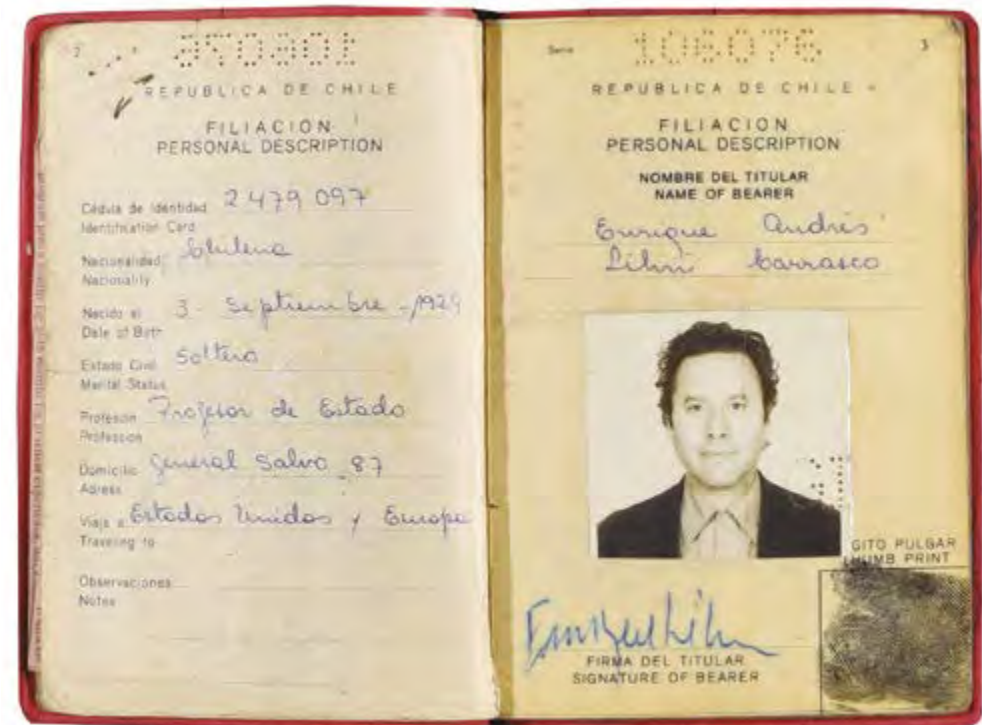 2
REPUBLICA DE CHILE
FILIACION
PERSONAL DESCRIPTION
Cédula de Identidad 2479 097
Identification Card
Nacionalidad Chilena
Nacionality
Nacido el 3 - Septiembre - 1929
Date of Birth
Estado Civil Soltero
Marital Status
Profesión Profesor de Estado
Profession
Domicilio General Salvo 87
Adress
Viaja a Estados Unidos y Europa
Traveling to
Observaciones
Notes
Serie 106076 3
REPUBLICA DE CHILE
FILIACION
PERSONAL DESCRIPTION
NOMBRE DEL TITULAR
NAME OF BEARER
Enrique Andrés
Lihn Carrasco
GITO PULGAR
THUMB PRINT
Enrique Lihn
FIRMA DEL TITULAR
SIGNATURE OF BEARER